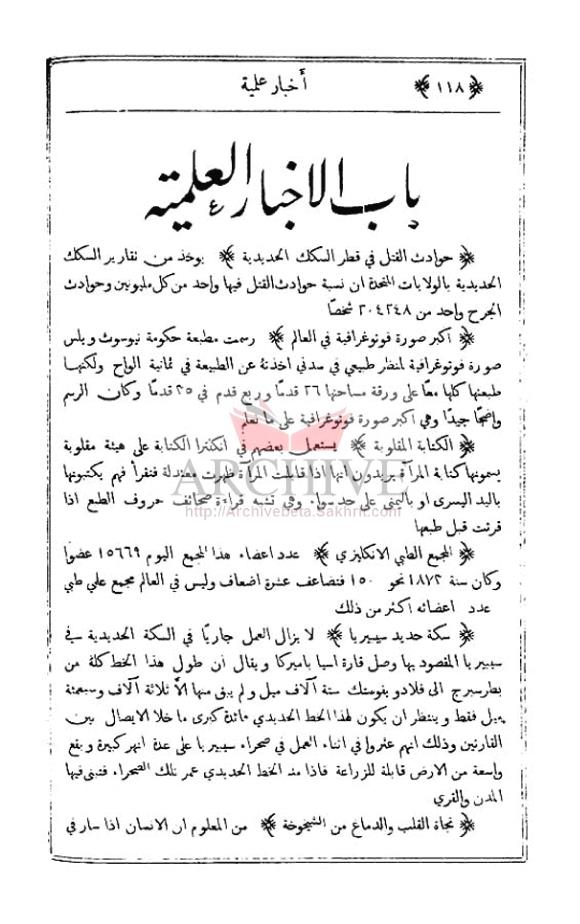 ﴿ ١١٨ ﴾ أخبار علمية
باب الاخبار العلمية
﴿ حوادث القتل في قطر السكك الحديدية ﴾ يوخذ من تقارير السكك
الحديدية بالولايات المتحدة ان نسبة حوادث القتل فيها واحد من كل مليونين وحوادث
الجرح واحد من ٢٠٤٢٤٨ شخصًا
﴿ اكبر صورة فوتوغرافية في العالم ﴾ رسمت مطبعة حكومة نيوسوث ويلس
صورة فوتوغرافية لمنظر طبيعي في سدني اخذتهُ عن الطبيعة في ثمانية الواح ولكنها
طبعتها كلها معًا على ورقة مساحتها ٢٦ قدمًا وربع قدم في ٢٥ قدمًا وكان الرسم
واضحًا جيدًا وهي اكبر صورة فوتوغرافية على ما نعلم
﴿ الكتابة المقلوبة ﴾ يستعمل بعضهم في انكلترا الكتابة على هيئة مقلوبة
يسمونها كتابة المرآة يريدون انها اذا قابلت المرآة ظهرت معتدلة فتقرأ فهم يكتبونها
باليد اليسرى او باليمنى على حد سواء وهي تشبه قراءة صحائف حروف الطبع اذا
قرئت قبل طبعها
ARCHIVE
http://Archivebeta.Sakhrit.com
﴿ المجمع الطبي الانكليزي ﴾ عدد اعضاء هذا المجمع اليوم ١٥٦٦٩ عضوًا
وكان سنة ١٨٧٢ نحو ١٥٠٠ فتضاعف عشرة اضعاف وليس في العالم مجمع علمي طبي
عدد اعضائه اكثر من ذلك
﴿ سكة حديد سيبيريا ﴾ لا يزال العمل جاريًا في السكة الحديدية في
سيبيريا المقصود بها وصل قارة اسيا باميركا ويقال ان طول هذا الخط كله من
بطرسبرج الى فلاديفوستك ستة آلاف ميل ولم يبق منها الأ ثلاثة آلاف وسبعمئة
ميل فقط وينتظر ان يكون لهذا الخط الحديدي فائدة كبرى ما خلا الايصال بين
القارتين وذلك انهم عثروا في اثناء العمل في صحراء سيبيريا على عدة انهر كبيرة وبقع
واسعة من الارض قابلة للزراعة فاذا مد الخط الحديدي عمر تلك الصحراء فتبنى فيها
المدن والقرى
﴿ نجاة القلب والدماغ من الشيخوخة ﴾ من المعلوم ان الانسان اذا سار في